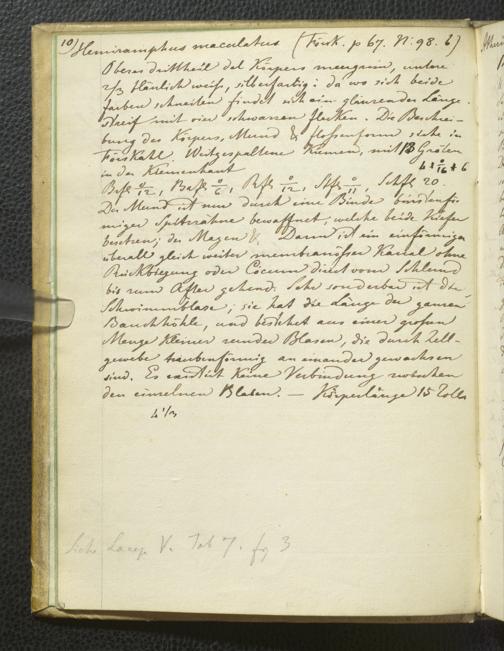 10) Hemiramphus maculatus (Forsk. p 67. N: 98. b)
Oberes drittheil des Körpers meergrün, untere
2/3 bläulich weiss, silberfarbig; da wo sich beide
farben schneiten findet sich ein glänzender Länge-
streif mit vier schwarzen flecken. Die Beschrei-
bung des Körpers, Mund & flossenform siehe in
Forskåhl. Weitgespaltene Kiemen, mit 13 Gräten
in der Kiemenhaut
Bfl. 0/12, Rfl. 0/12, 0/11, Schfl. 20.
Der Mund ist nur durch eine Binde bürstenför-
miger Spitzzähne bewaffnet, welche beide Kiefer
besetzen; der Magen & Darm ist ein einförmiger
überall gleich weiter membranösser Kanal ohne
Rückbiegung oder Coecum direct vom Schlund
bis zum After gehend. Sehr sonderbar ist die
Schwimmblase; sie hat die Länge der ganzen
Bauchhöhle, und bestehet aus einer grosen
Menge kleiner runder Blasen, die durch Zell-
gewebe traubenförmig an einander gewachsen
sind. Es existirt keine Verbindung zwischen
den einzelnen Blasen. — Körperlänge 15 Zolle
4 1/3
Siehe Lacep V. Tab 7. fg 3